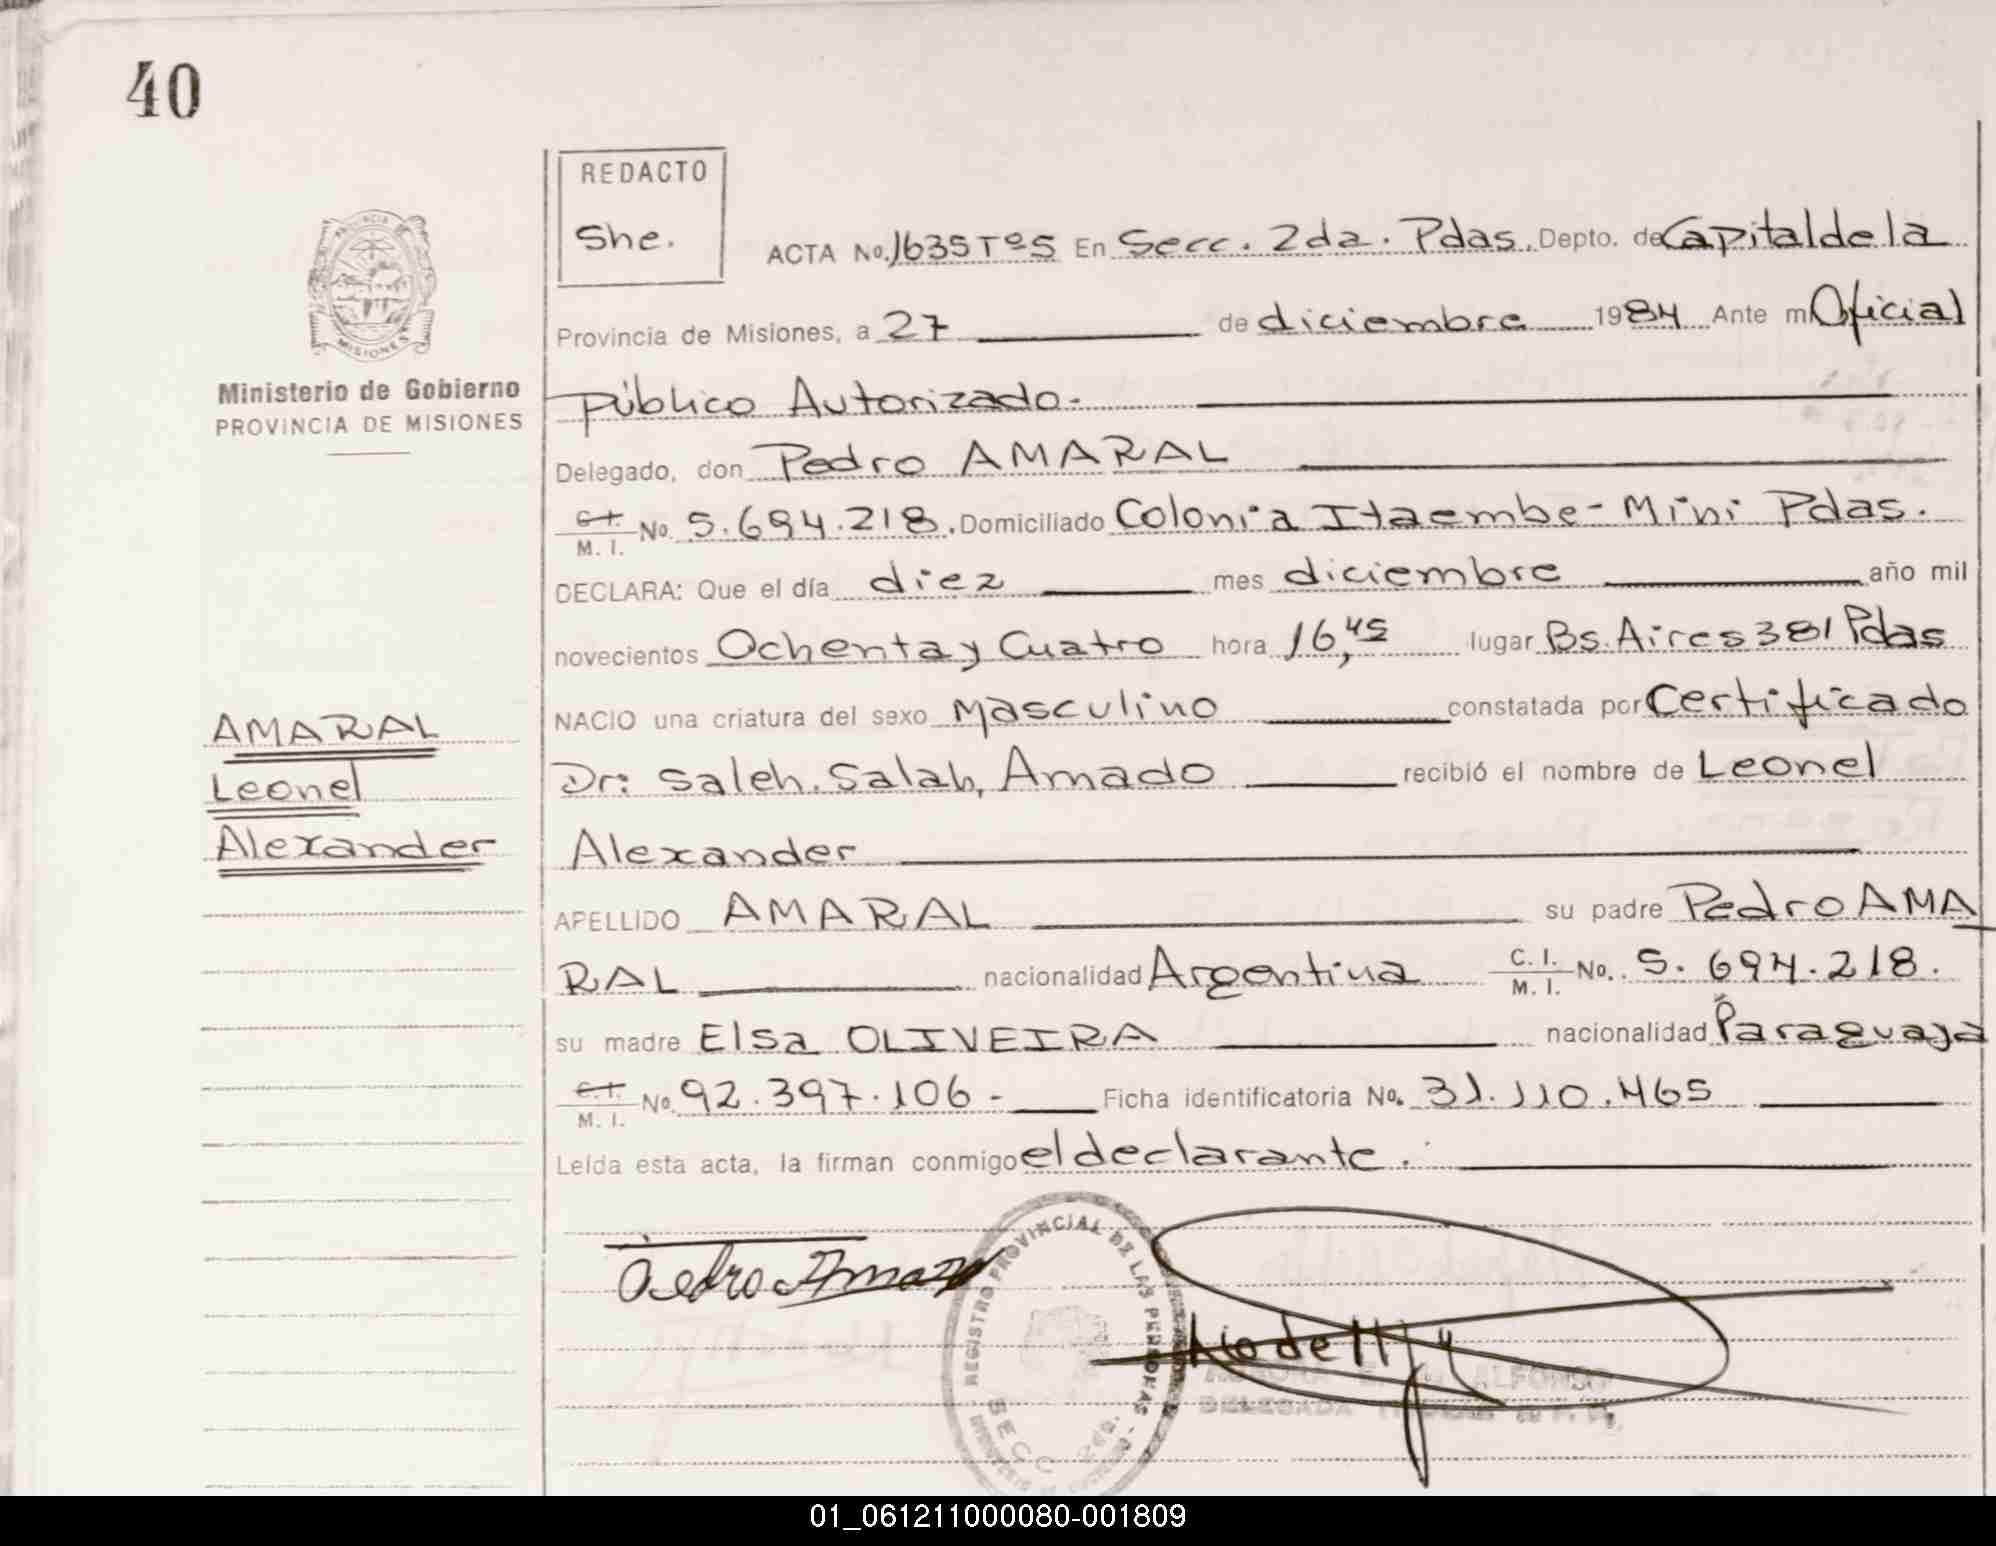 40
REDACTO
She.
ACTA No. 1635 Tº5 En Secc. 2da. Pdas. Depto. de Capital de la
Provincia de Misiones, a 27 de diciembre 1984 Ante mi Oficial
Público Autorizado.
Delegado, don Pedro AMARAL
C.I. M. I. No. 5.694.218. Domiciliado Colonia Itaembe-Mini Pdas.
DECLARA: Que el día diez mes diciembre año mil
novecientos Ochenta y Cuatro hora 16,45 lugar Bs. Aires 381 Pdas
NACIO una criatura del sexo Masculino constatada por Certificado
Dr: Saleh. Salah, Amado recibió el nombre de Leonel
Alexander
APELLIDO AMARAL su padre Pedro AMA
RAL nacionalidad Argentina C. I. M. I. No. 5.694.218.
su madre Elsa OLIVEIRA nacionalidad Paraguaya
C.I. M. I. No. 92.397.106- Ficha identificatoria No. 31.110.465
Leída esta acta, la firman conmigo el declarante.
PROVINCIA DE
MISIONES
Ministerio de Gobierno
PROVINCIA DE MISIONES
AMARAL
Leonel
Alexander
Pedro Amaral
REGISTRO PROVINCIAL DE LAS PERSONAS
SECC 2da.
ALFONSO
DELEGADA
01_061211000080-001809